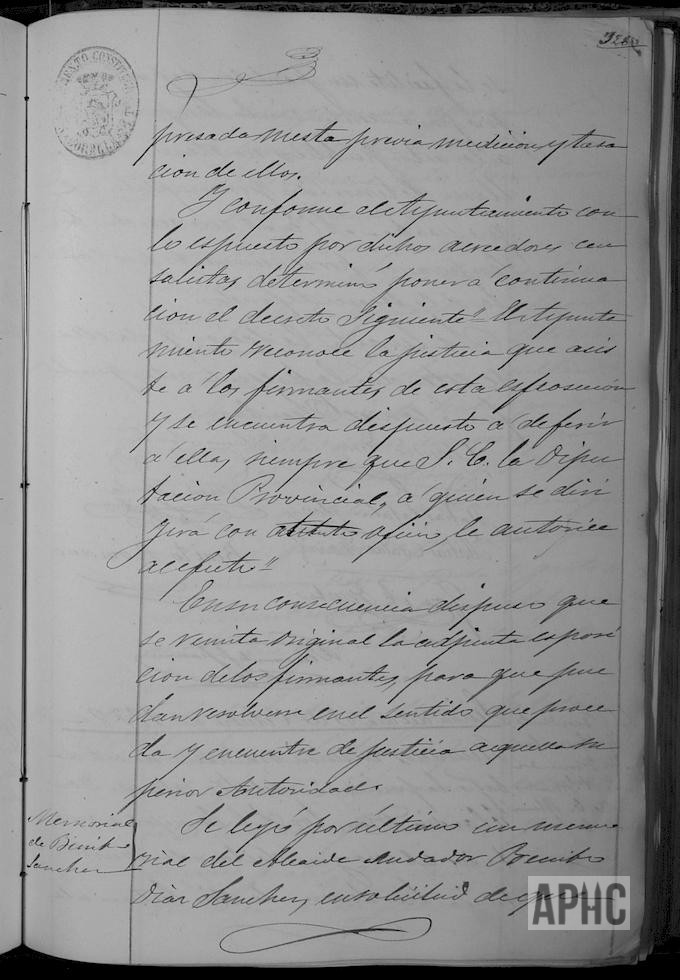 presada mesta previa medicion y tasa
cion de ellos.
Y conforme el Ayuntamiento con
lo espuesto por dichos acreedores cen
salistas determinó poner á continua
cion el decreto siguiente = El Ayunta
miento reconoce la justicia que asis
te á los firmantes de esta esposicion
y se encuentra dispuesto á deferir
á ellas, siempre que S. E. la Dipu
tacion Provincial, á quien se diri
girá con atento oficio, le autorice
al efecto =
En su consecuencia dispuso que
se remita original la adjunta esposi
cion de los firmantes, para que pue
dan resolver en el sentido que proce
da y encuentre de justicia aquella su
perior Autoridad.
Memorial
de Benito
Sanchez
Se leyó por último un memo
rial del Alcaide Andador Benito
Diaz Sanchez, en solicitud de que
APHC